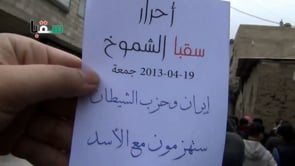 سقبا
أحرار
سقبا الشموخ
جمعة 19-04-2013
إيران وحزب الشيطان
سنهزمون مع الأسد